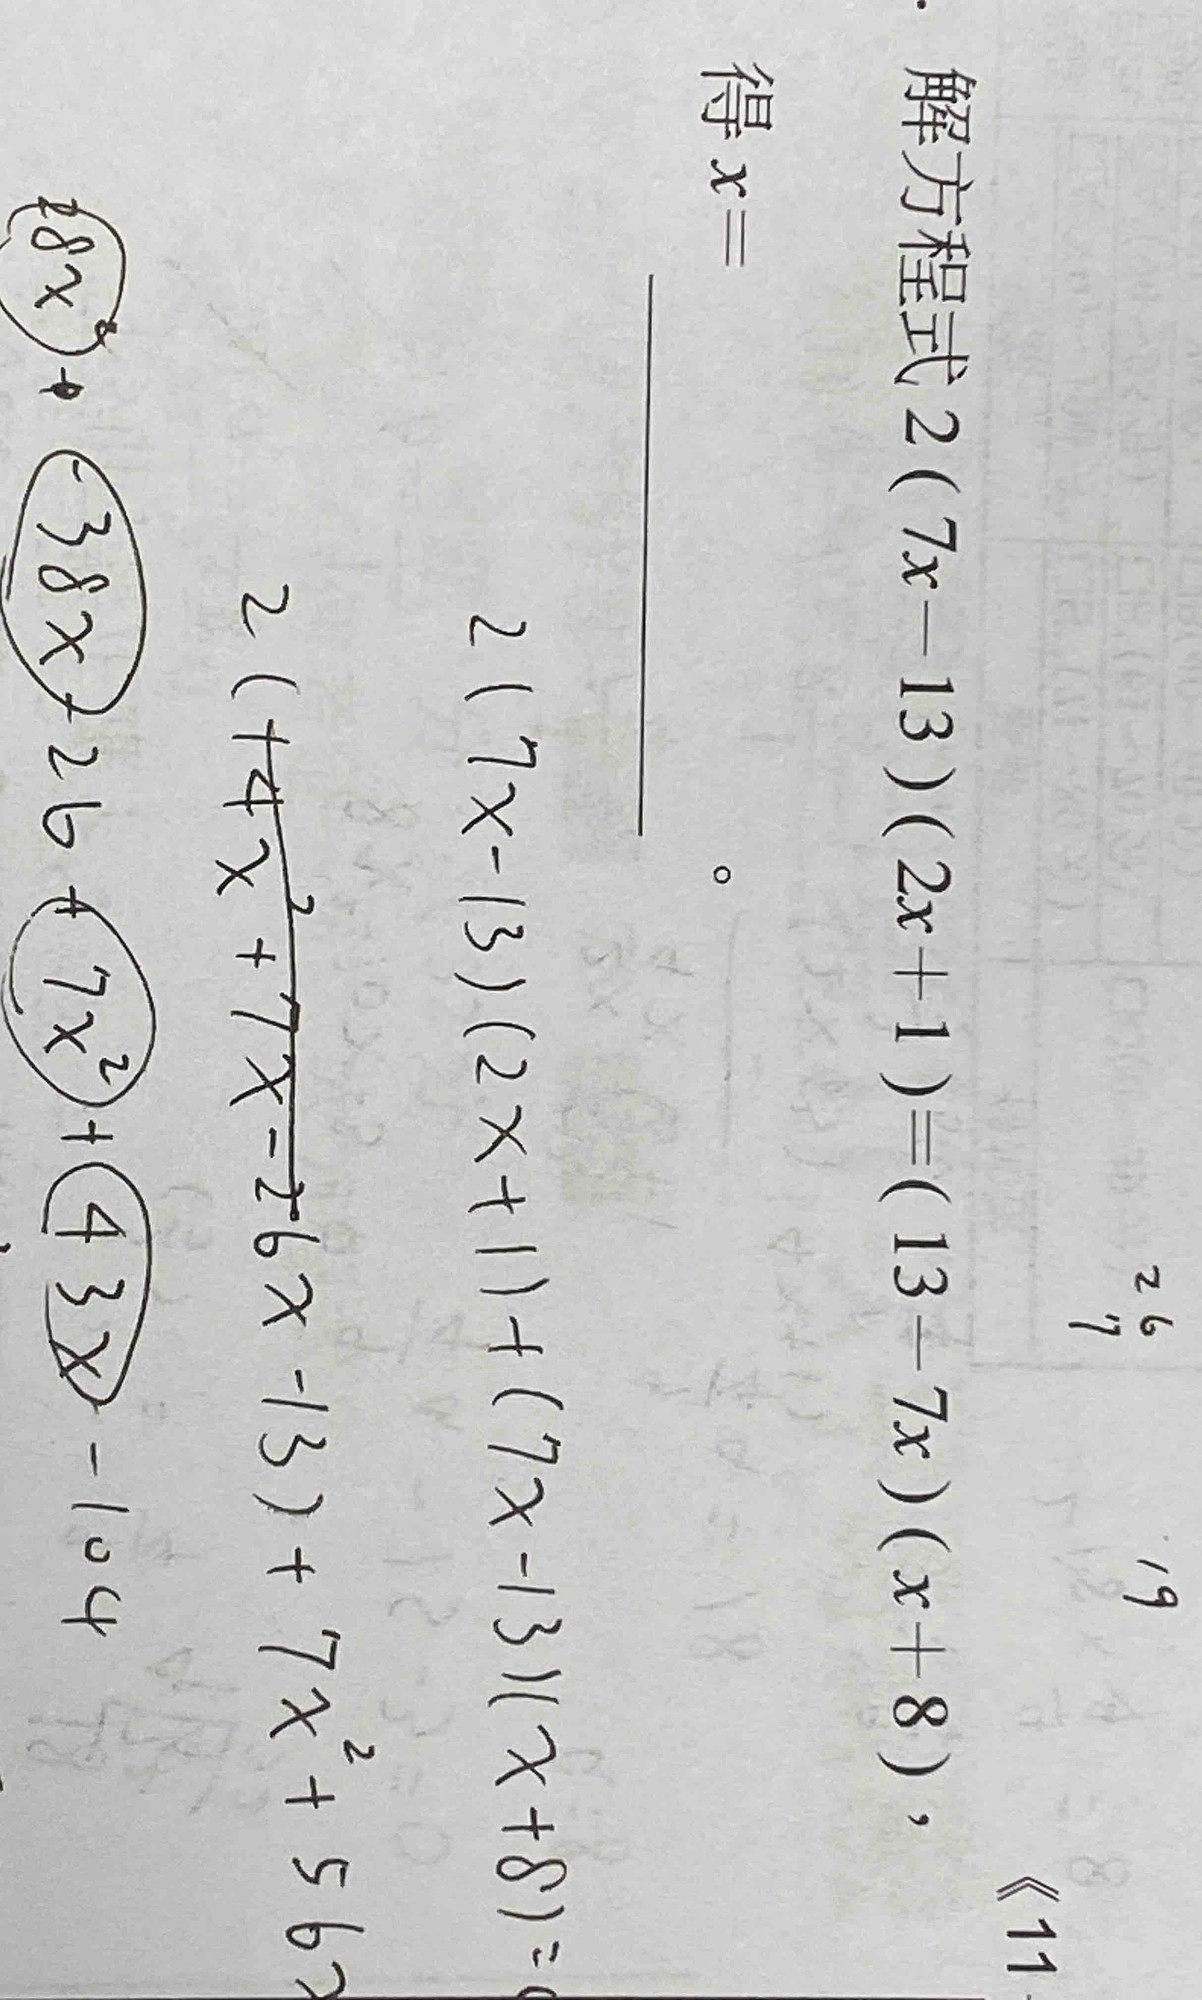 《11
26
7
19
. 解方程式2(7x－13)(2x＋1)＝(13－7x)(x＋8)，
得x＝________。
2(7x-13)(2x+1)+(7x-13)(x+8)=0
2(14x²+7x-26x-13)+7x²+56x
28x²+-38x-26+7x²+43x-104